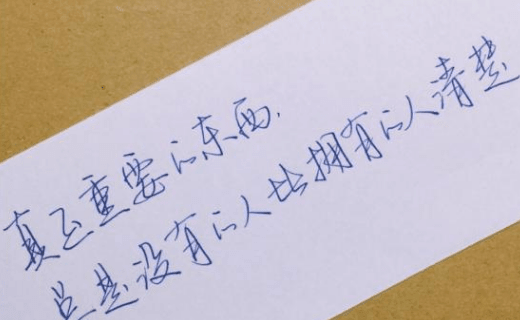 真正重要的东西.
总是没有的人比拥有的人清楚